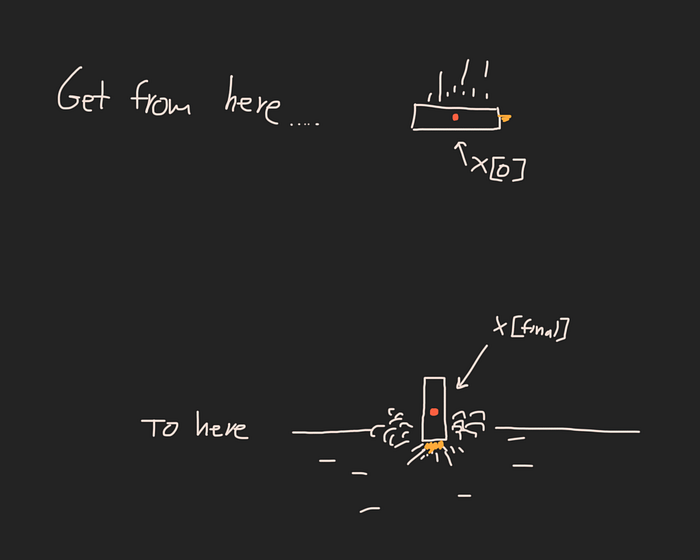 Get from here.....
X[0]
X[final]
TO here